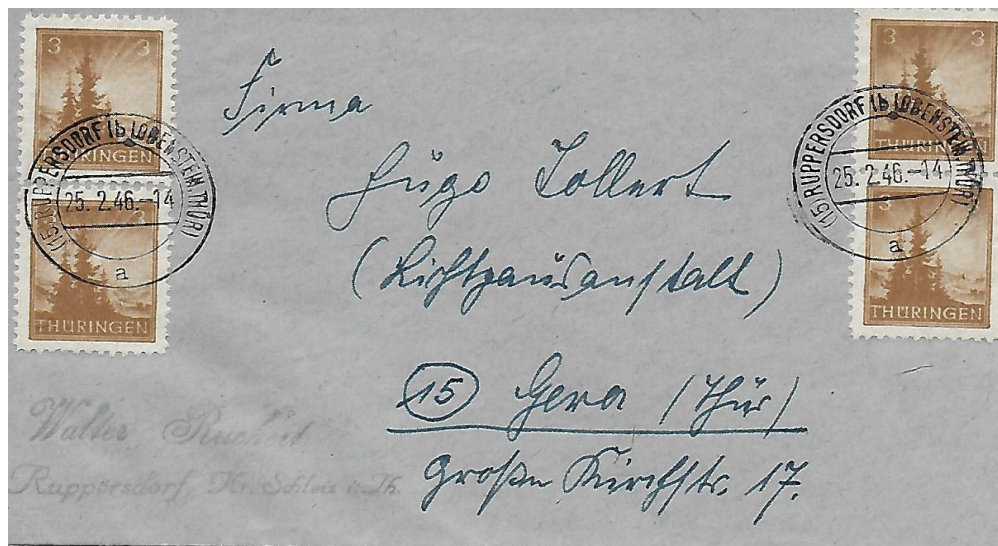 3 3
THÜRINGEN
3
THÜRINGEN
(15) RUPPERSDORF üb LOBENSTEIN (THÜR)
25. 2.46.-14
a
3 3
THÜRINGEN
3
THÜRINGEN
(15) RUPPERSDORF üb LOBENSTEIN (THÜR)
25. 2.46.-14
a
Firma
Hugo Collert
(Lichtpausanstalt)
15 Gera (Thür)
Große Kirchstr. 17.
Walter
Ruppersdorf, Kr. Schleiz i. Th.